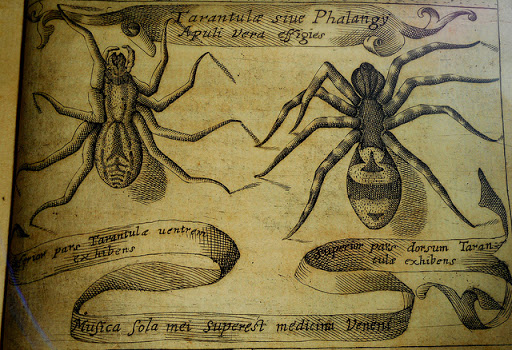 Tarantulæ siue Phalangy
Apuli vera effigies
pars Tarantulæ uentrem
exhibens
Superior pars dorsum Taran-
tulæ exhibens
Musica ſola mei Superest medicina Veneni